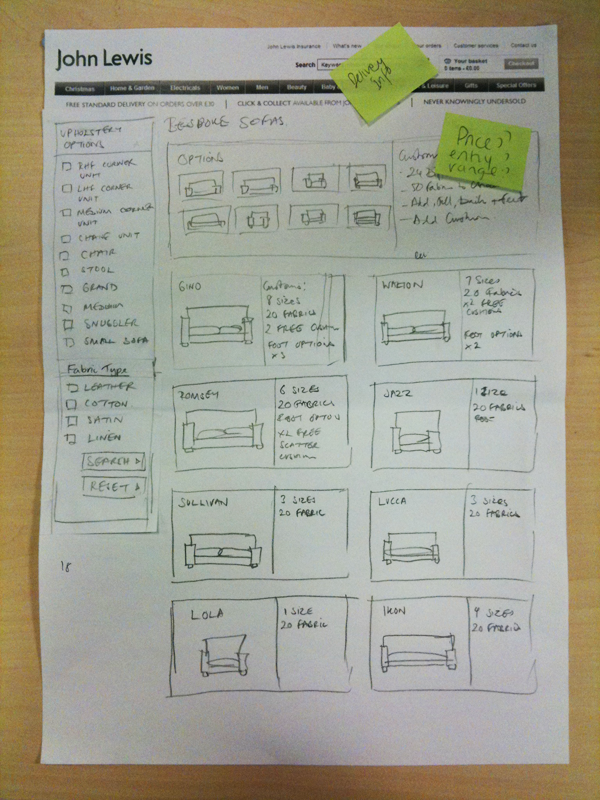 John Lewis
John Lewis Insurance | What's new orders | Customer services | Contact us
Search Keywor Your basket
0 items - £0.00 Checkout
Christmas Home & Garden Electricals Women Men Beauty Baby & Leisure Gifts Special Offers
FREE STANDARD DELIVERY ON ORDERS OVER £30 | CLICK & COLLECT AVAILABLE FROM JO NEVER KNOWINGLY UNDERSOLD
Delivery
info
Price??
entry ?
range?
UPHOLSTERY
OPTIONS
RHF CORNER
UNIT
LHF CORNER
UNIT
MEDIUM CORNER
UNIT
CHAISE UNIT
CHAIR
STOOL
GRAND
MEDIUM
SNUGGLER
SMALL SOFA
Fabric Type
LEATHER
COTTON
SATIN
LINEN
SEARCH >
RESET >
18
BESPOKE SOFAS
OPTIONS
Custom
- 24
- 50 Fabric
- Add
- Add Cushion
GINO
Custom:
8 SIZES
20 FABRICS
2 FREE
FOOT OPTIONS
x 3
WALTON
7 SIZES
20 Fabrics
x2 FREE
CUSHIONS
FOOT OPTIONS
x2
ROMSEY
6 SIZES
20 FABRICS
FOOT OPTION
x2 FREE
SCATTER
CUSHION
JAZZ
1 SIZE
20 FABRICS
SULLIVAN
3 SIZES
20 FABRIC
LUCCA
3 SIZES
20 FABRICS
LOLA
1 SIZE
20 FABRIC
IKON
4 SIZES
20 FABRICS